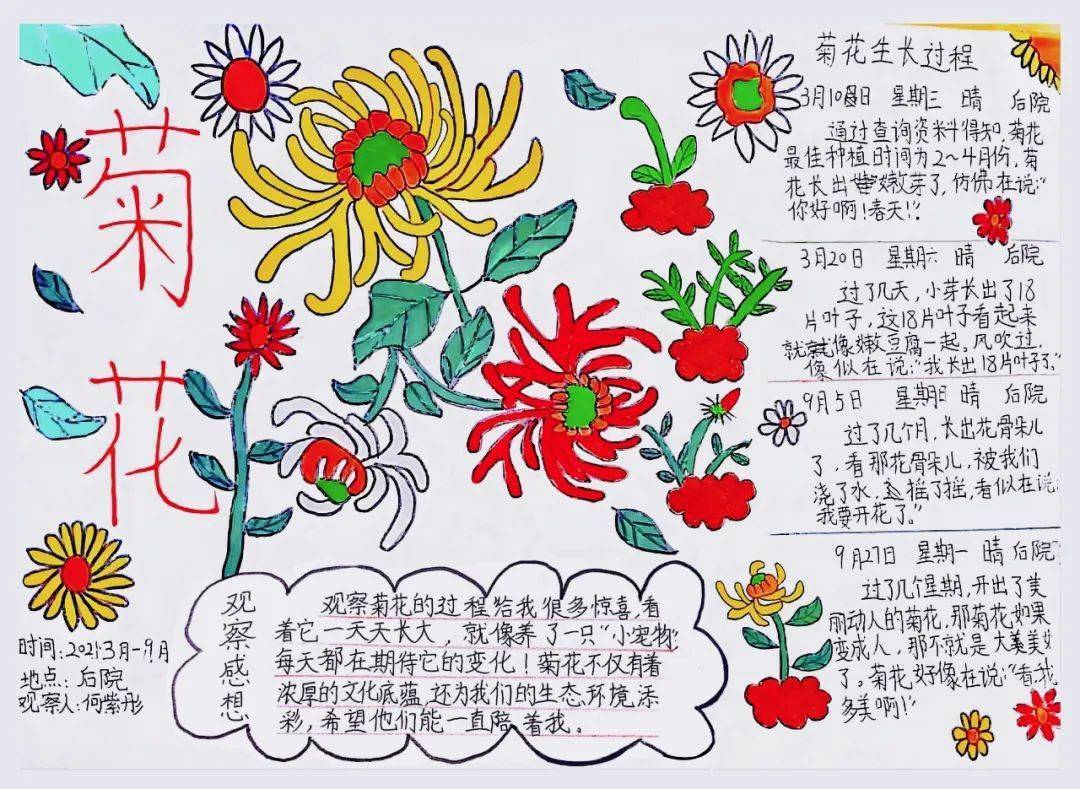 菊花
时间:2021.3月-9月
地点:后院
观察人:何紫彤
观察感想
观察菊花的过程给我很多惊喜,看
着它一天天长大,就像养了一只“小宠物”
每天都在期待它的变化!菊花不仅有着
浓厚的文化底蕴,还为我们的生态环境添
彩,希望他们能一直陪着我。
菊花生长过程
3月10日 星期三 晴 后院
通过查询资料得知,菊花
最佳种植时间为2~4月份,菊
花长出嫩芽了,仿佛在说:“
你好啊!春天!”
3月20日 星期六 晴 后院
过了几天,小芽长出了18
片叶子,这18片叶子看起来
就像嫩豆腐一起,风吹过,
像似在说:“我长出18片叶子了。”
9月5日 星期日 晴 后院
过了几个月,长出花骨朵儿
了,看那花骨朵儿,被我们
浇了水,摇了摇,看似在说:
“我要开花了。”
9月27日 星期一 晴 后院
过了几个星期,开出了美
丽动人的菊花,那菊花如果
变成人,那不就是大美女
了。菊花好像在说:“看,我
多美啊!”